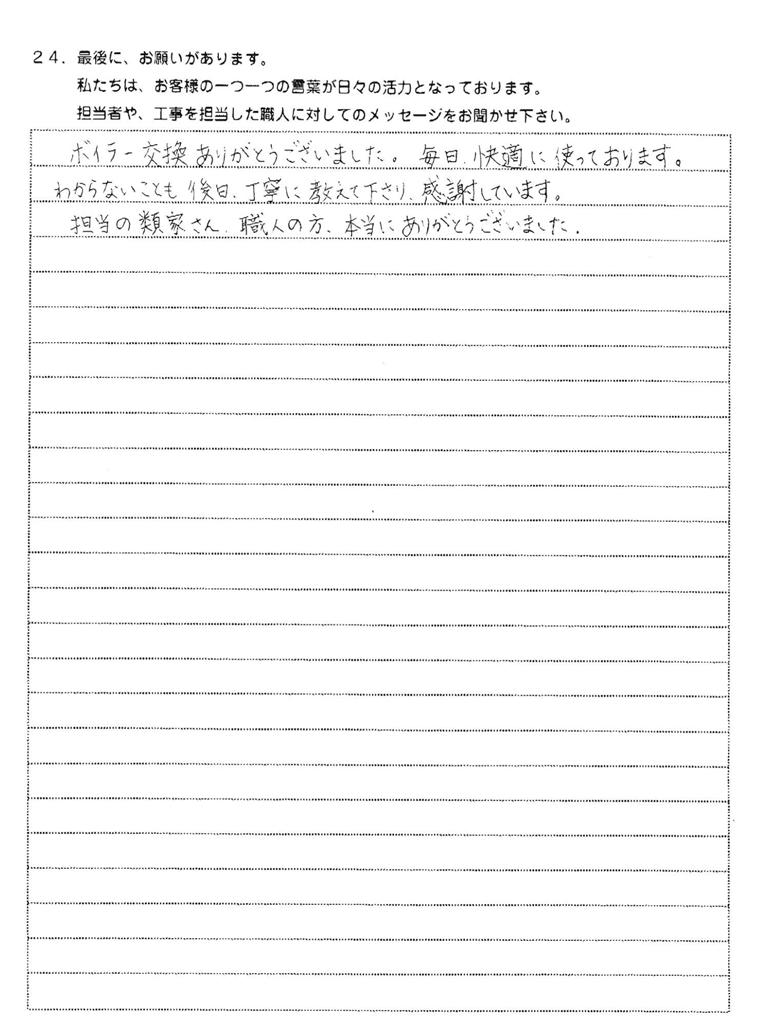 24．最後に、お願いがあります。
私たちは、お客様の一つ一つの言葉が日々の活力となっております。
担当者や、工事を担当した職人に対してのメッセージをお聞かせ下さい。
ボイラー交換ありがとうございました。毎日、快適に使っております。
わからないことも後日、丁寧に教えて下さり、感謝しています。
担当の類家さん、職人の方、本当にありがとうございました。